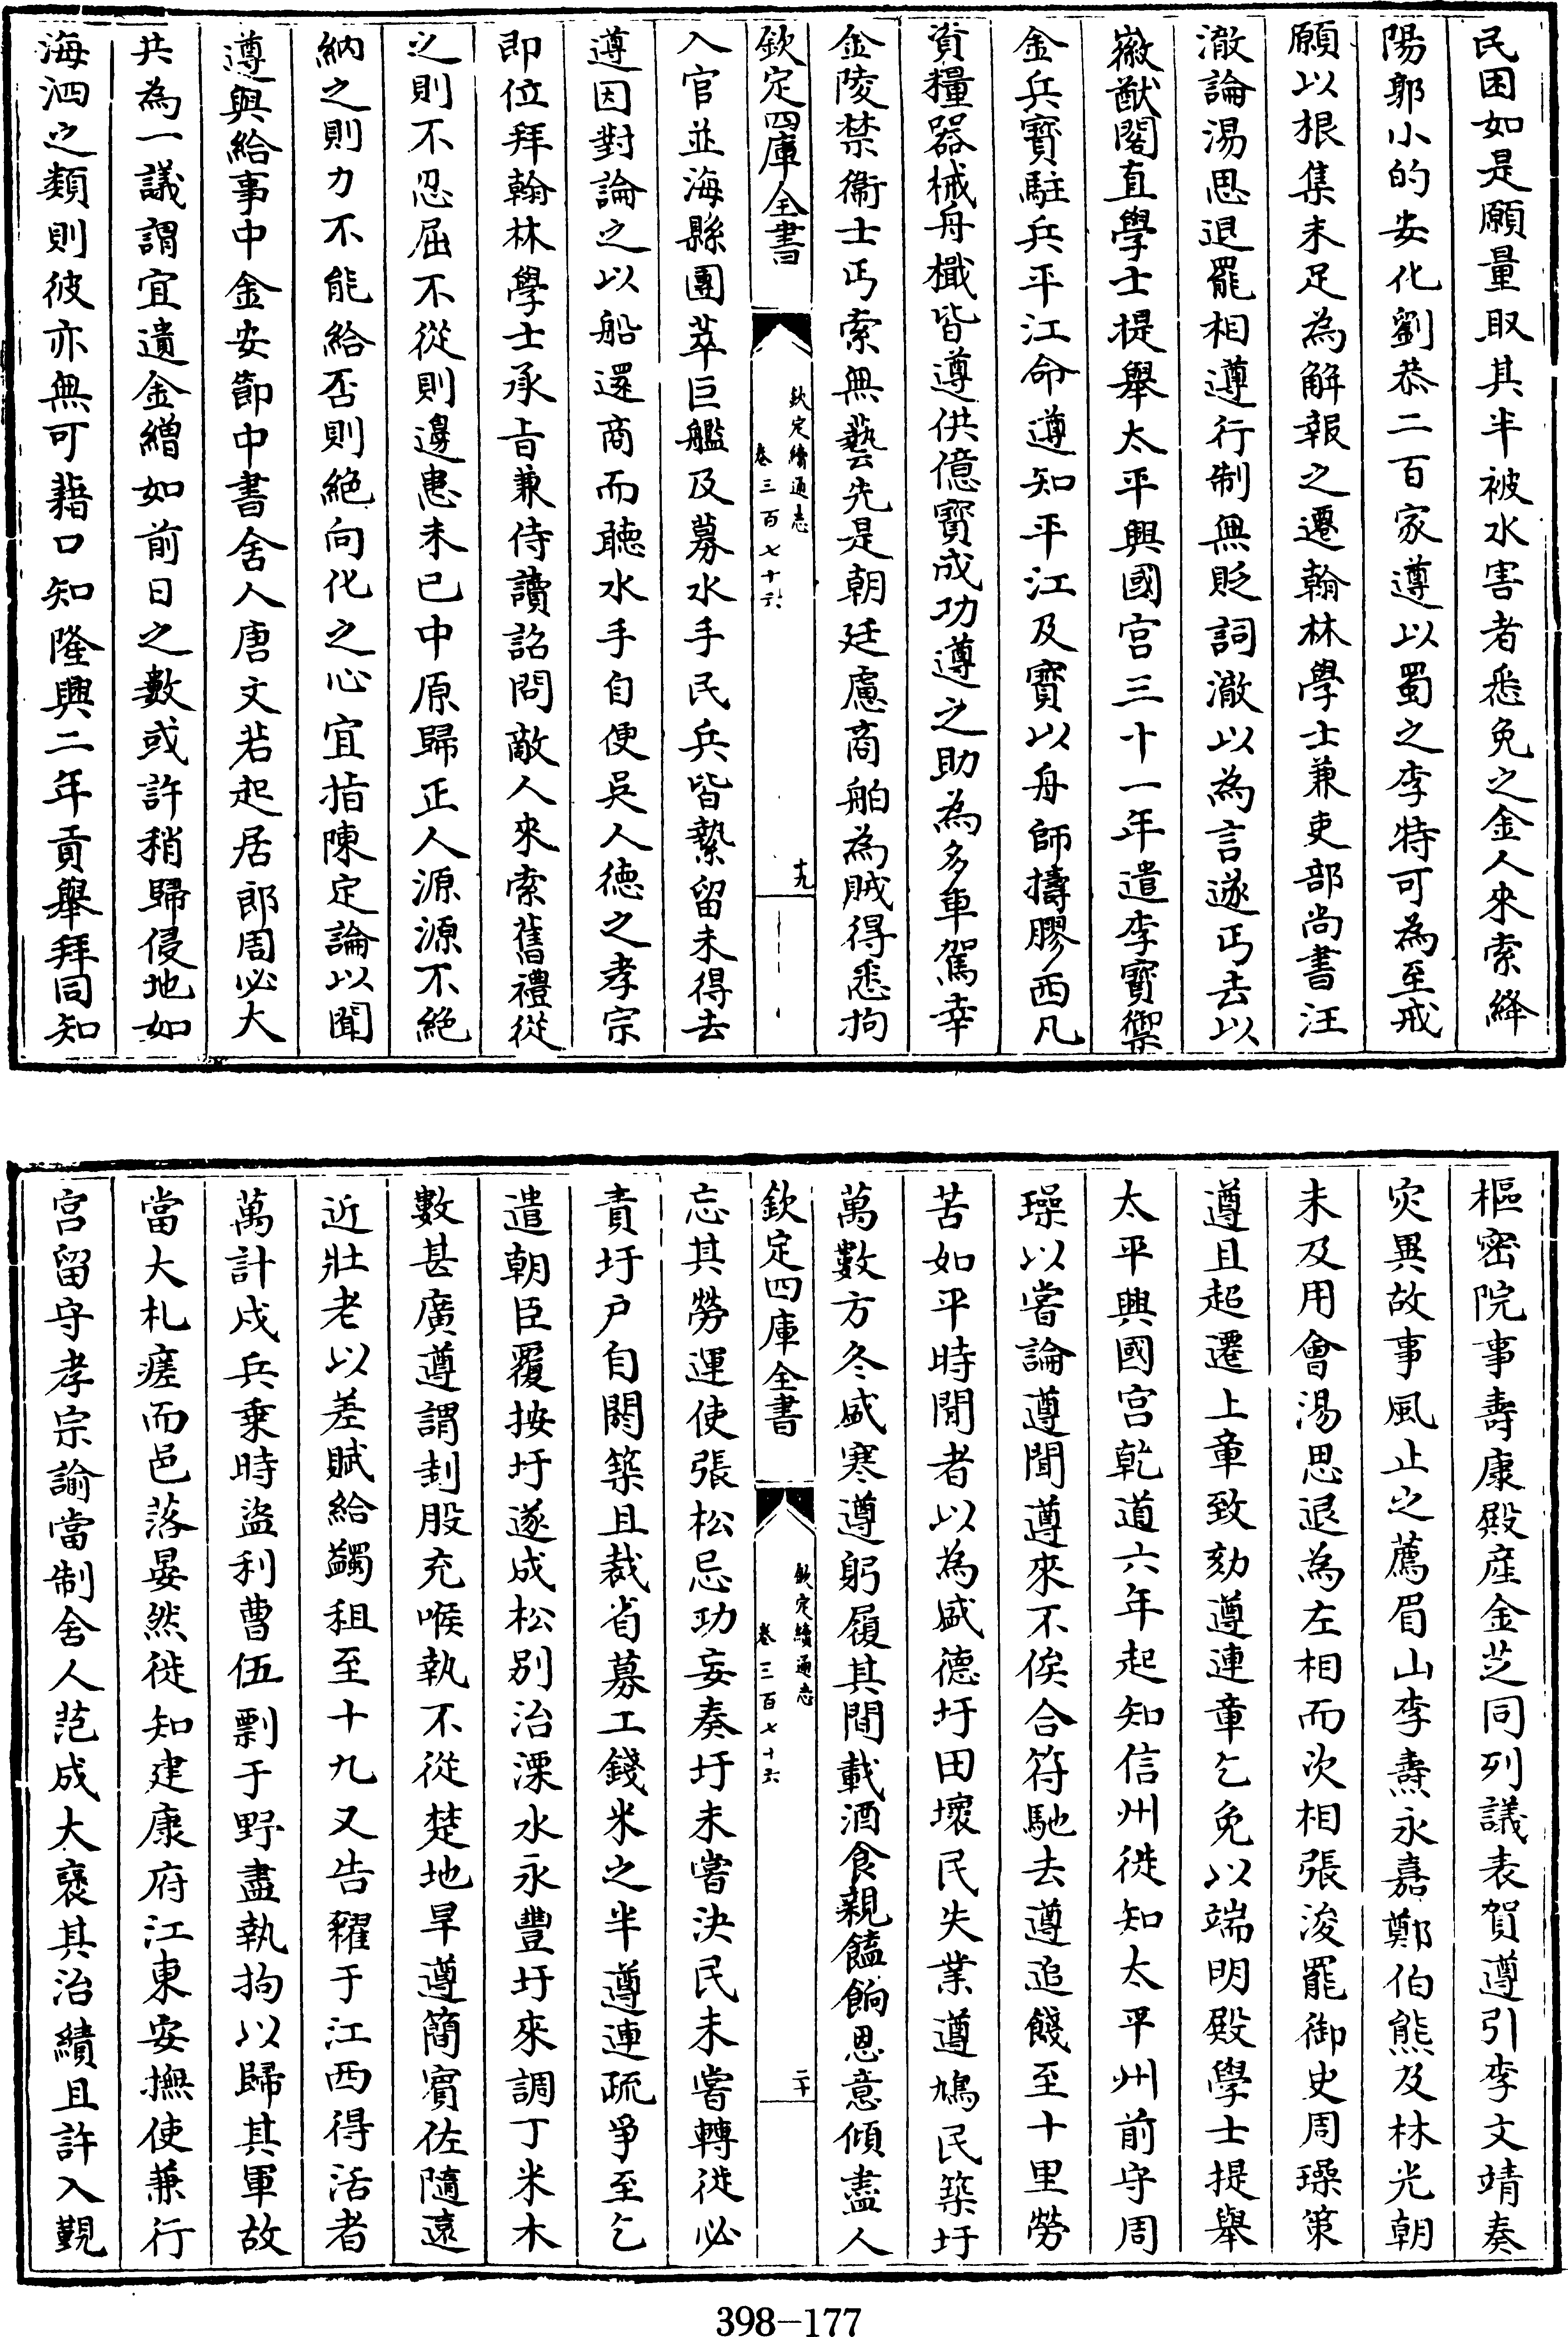 民困如是願量取其半被水害者悉免之金人來索絳
陽郭小的安化劉恭二百家遵以蜀之李特可為至戒
願以根集未足為解報之遷翰林學士兼吏部尚書汪
澈論湯思退罷相遵行制無貶詞澈以為言遂丐去以
徽猷閣直學士提舉太平興國宫三十一年遣李寶禦
金兵寶駐兵平江命遵知平江及寶以舟師擣膠西凡
資糧器械舟檝皆遵供億寶成功遵之助為多車駕幸
金陵禁衞士丐索無藝先是朝廷慮商舶為賊得悉拘
欽定四庫全書
欽定續通志
卷三百七十六
十九
入官並海縣團萃巨艦及募水手民兵皆縶留未得去
遵因對論之以船還商而聽水手自便吳人德之孝宗
即位拜翰林學士承㫖兼侍讀詔問敵人來索舊禮從
之則不忍屈不從則邊患未已中原歸正人源源不絶
納之則力不能給否則絶向化之心宜指陳定論以聞
遵與給事中金安節中書舍人唐文若起居郎周必大
共為一議謂宜遺金繒如前日之數或許稍歸侵地如
海泗之類則彼亦無可藉口知隆興二年貢舉拜同知
樞密院事壽康殿産金芝同列議表賀遵引李文靖奏
災異故事風止之薦眉山李燾永嘉鄭伯熊及林光朝
未及用會湯思退為左相而次相張浚罷御史周璪策
遵且起遷上章致劾遵連章乞免以端明殿學士提舉
太平興國宫乾道六年起知信州徙知太平州前守周
璪以嘗論遵聞遵來不俟合符馳去遵追餞至十里勞
苦如平時聞者以為盛德圩田壞民失業遵鳩民築圩
萬數方冬盛寒遵躬履其間載酒食親饁餉恩意傾盡人
欽定四庫全書
欽定續通志
卷三百七十六
二十
忘其勞運使張松忌功妄奏圩未嘗決民未嘗轉徙必
責圩户自閼築且裁省募工錢米之半遵連疏爭至乞
遣朝臣覆按圩遂成松别治溧水永豐圩來調丁米木
數甚廣遵謂刲股充喉執不從楚地旱遵簡賓佐隨遠
近壯老以差賦給蠲租至十九又告糴于江西得活者
萬計戍兵乘時盜利曹伍剽于野盡執拘以歸其軍故
當大札瘥而邑落晏然徙知建康府江東安撫使兼行
宫留守孝宗諭當制舍人范成大褒其治績且許入覲
398-177